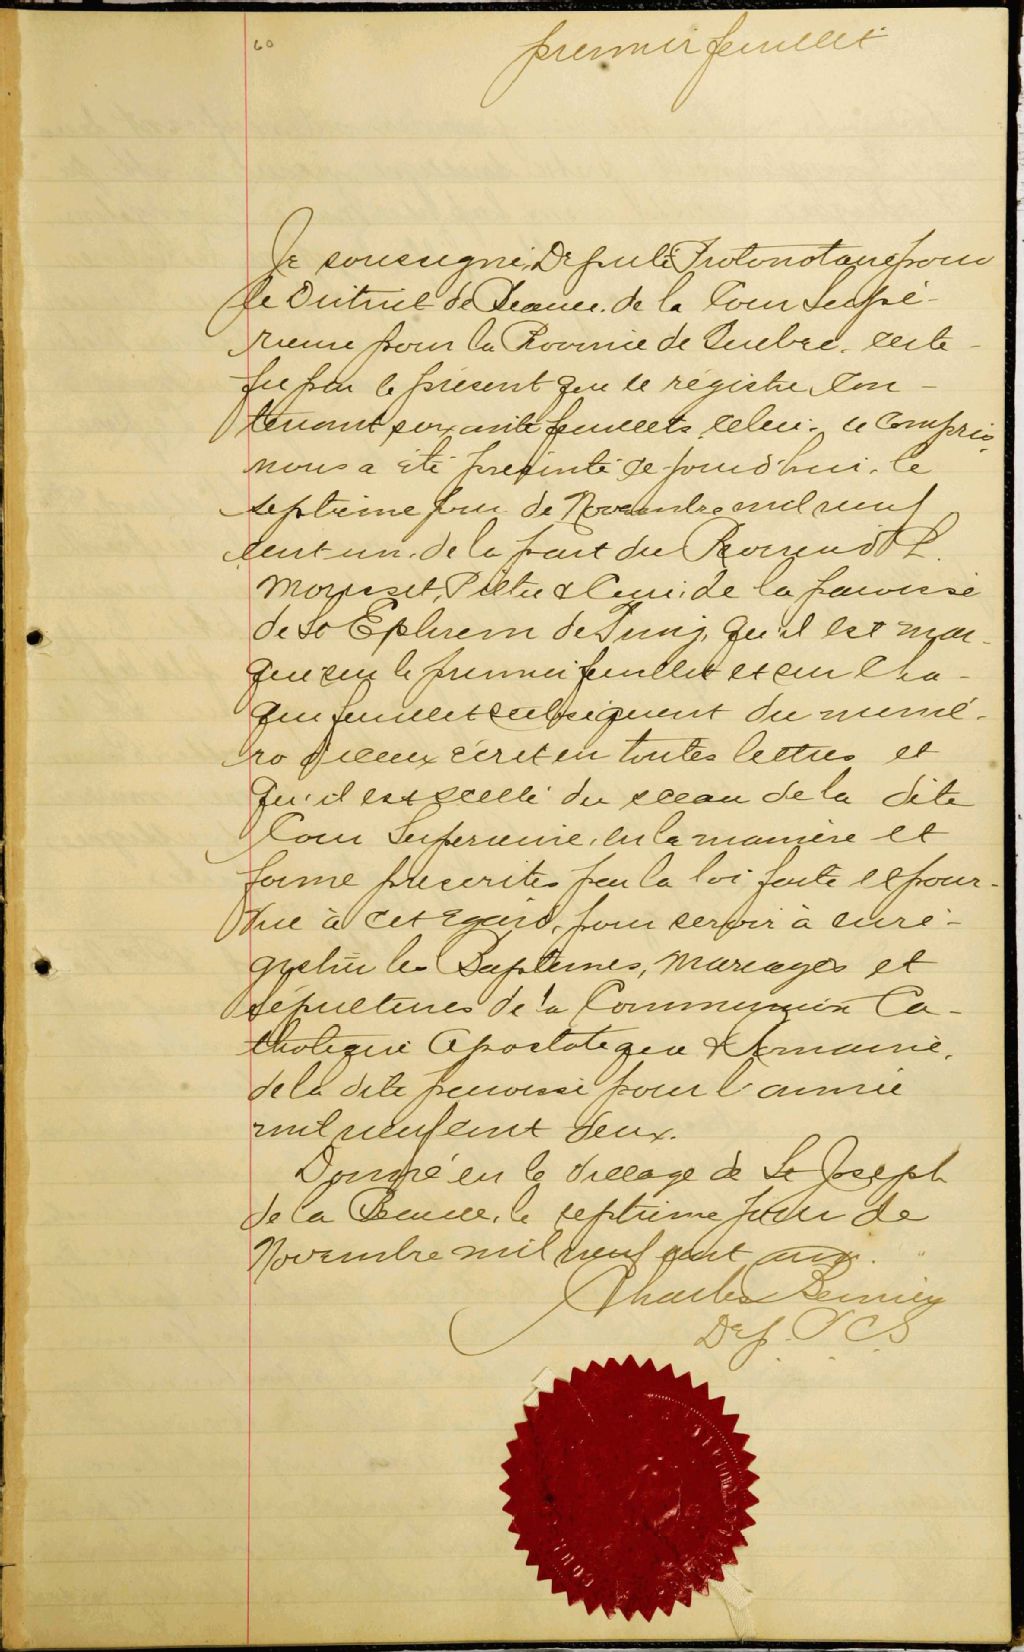 60
premier feuillet
Je soussigné, Député Protonotaire pour
le District de Beauce, de la Cour Supé-
rieure pour la Province de Québec, certi-
fie par le présent que ce régistre, con-
tenant soixante feuillets, celui-ci compris,
nous a été présenté ce jourd'hui, le
septième jour de Novembre mil neuf
cent un, de la part du Révérend
Morisset, Prêtre & Curé, de la paroisse
de St Ephrem de Tring, qu'il est mar-
qué sur le premier feuillet et sur cha-
que feuillet subséquent du numé-
ro d'iceux écrit en toutes lettres et
qu'il est scellé du sceau de la dite
Cour Supérieure, en la manière et
forme prescrites par la loi faite et pour-
vue à cet égard, pour servir à enré-
gistrer les Baptêmes, Mariages et
sépultures de la Communion Ca-
tholique Apostolique & Romaine,
de la dite paroisse pour l'année
mil neuf cent deux.
Donné en le village de St Joseph
de la Beauce, le septième jour de
Novembre mil neuf cent un.
Charles
Dep. P C S